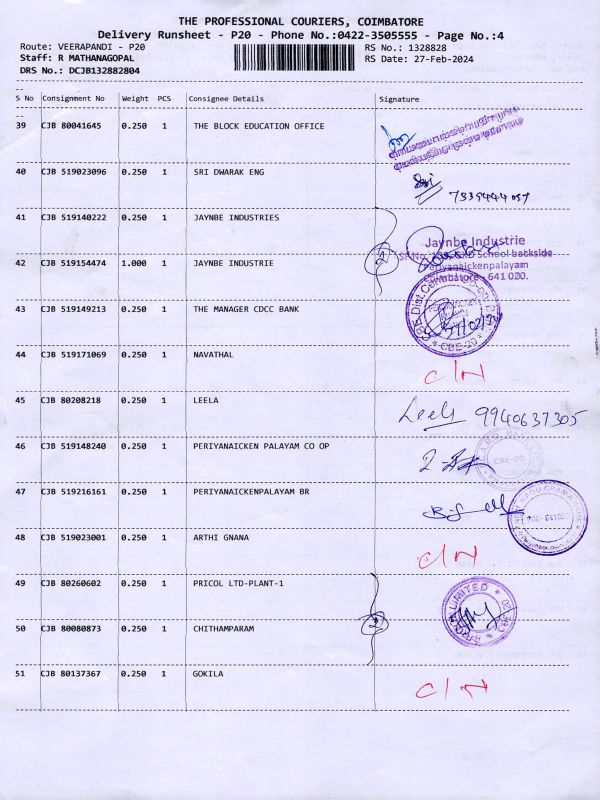 THE PROFESSIONAL COURIERS, COIMBATORE
Delivery Runsheet - P20 - Phone No.:0422-3505555 - Page No.:4
Route: VEERAPANDI - P20 RS No.: 1328828
Staff: R MATHANAGOPAL RS Date: 27-Feb-2024
DRS No.: DCJB132882804
S No Consignment No Weight PCS Consignee Details Signature
39 CJB 80041645 0.250 1 THE BLOCK EDUCATION OFFICE
40 CJB 519023096 0.250 1 SRI DWARAK ENG
41 CJB 519140222 0.250 1 JAYNBE INDUSTRIES
Jaynbe Industrie
School backside
42 CJB 519154474 1.000 1 JAYNBE INDUSTRIE
Periyanaickenpalayam
Coimbatore - 641 020.
43 CJB 519149213 0.250 1 THE MANAGER CDCC BANK
CBE-20
44 CJB 519171069 0.250 1 NAVATHAL C/N
45 CJB 80208218 0.250 1 LEELA Leela 9940637305
46 CJB 519148240 0.250 1 PERIYANAICKEN PALAYAM CO OP CBE-20
47 CJB 519216161 0.250 1 PERIYANAICKENPALAYAM BR
48 CJB 519023001 0.250 1 ARTHI GNANA C/N
49 CJB 80260602 0.250 1 PRICOL LTD-PLANT-1 LIMITED
50 CJB 80080873 0.250 1 CHITHAMPARAM
51 CJB 80137367 0.250 1 GOKILA C/N